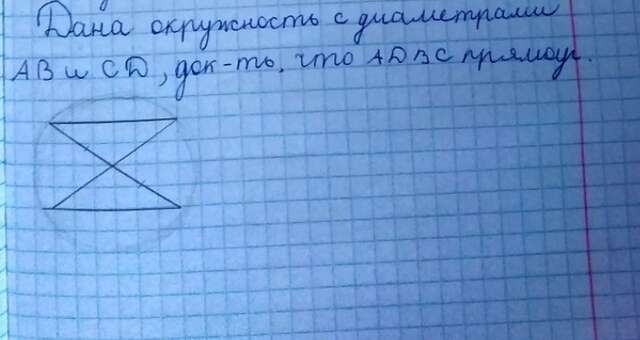 Дана окружность с диаметрами
AB и CD, док-ть, что ADBC прямоуг.